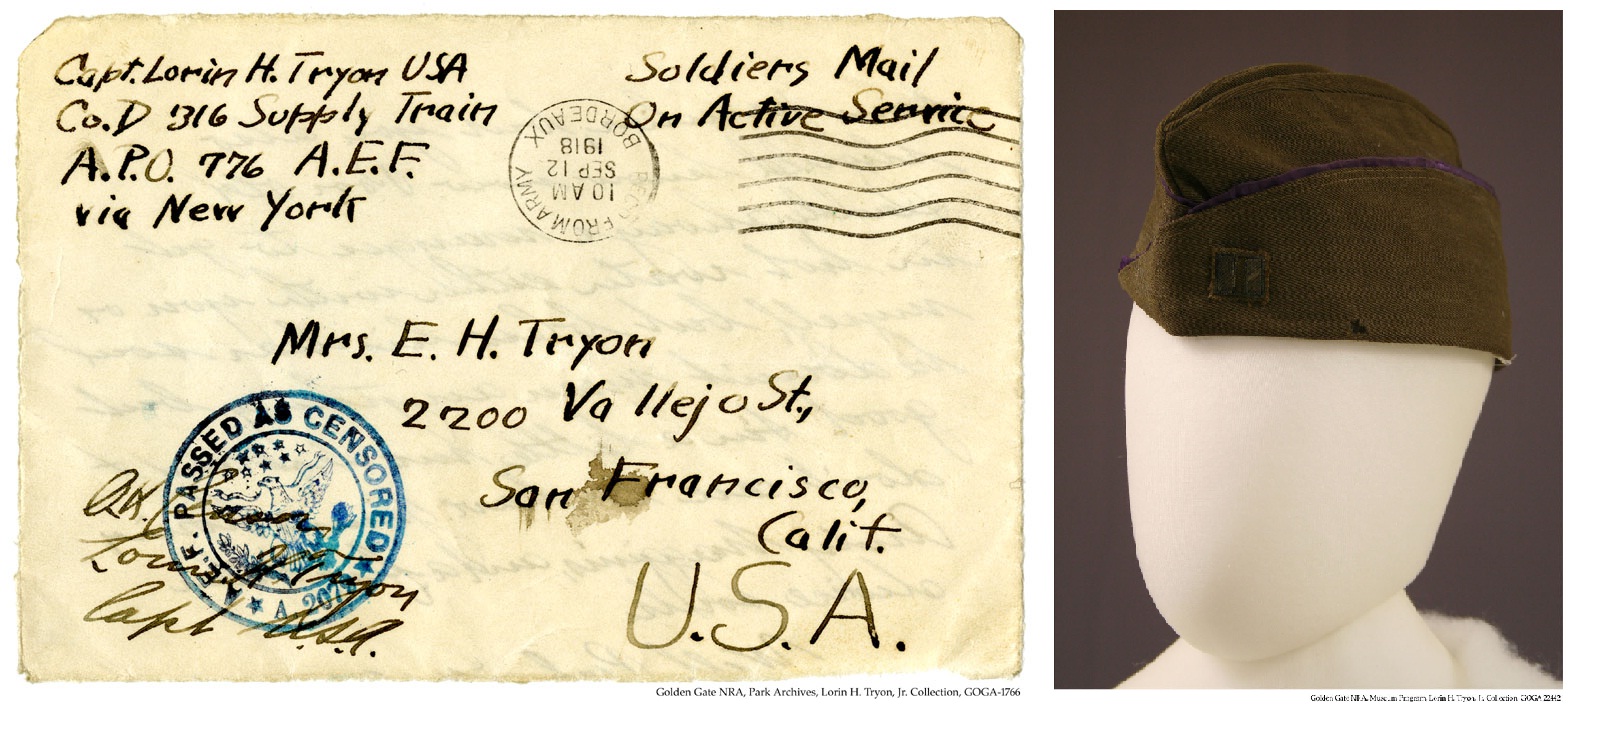 Capt. Lorin H. Tryon USA
Co.D 316 Supply Train
A.P.O. 776 A.E.F.
via New York
Soldiers Mail
On Active Service
BORDEAUX
1918
SEP 12
10 AM
FROM ARMY
Mrs. E. H. Tryon
2200 Vallejo St.,
San Francisco,
Calif.
U.S.A.
A.E.F. PASSED AS CENSORED
A 207
Lorin H Tryon
Capt U.S.A.
Golden Gate NRA, Park Archives, Lorin H. Tryon, Jr. Collection, GOGA-1766
Golden Gate NRA, Museum Program Lorin H. Tryon, Jr. Collection, GOGA 22442